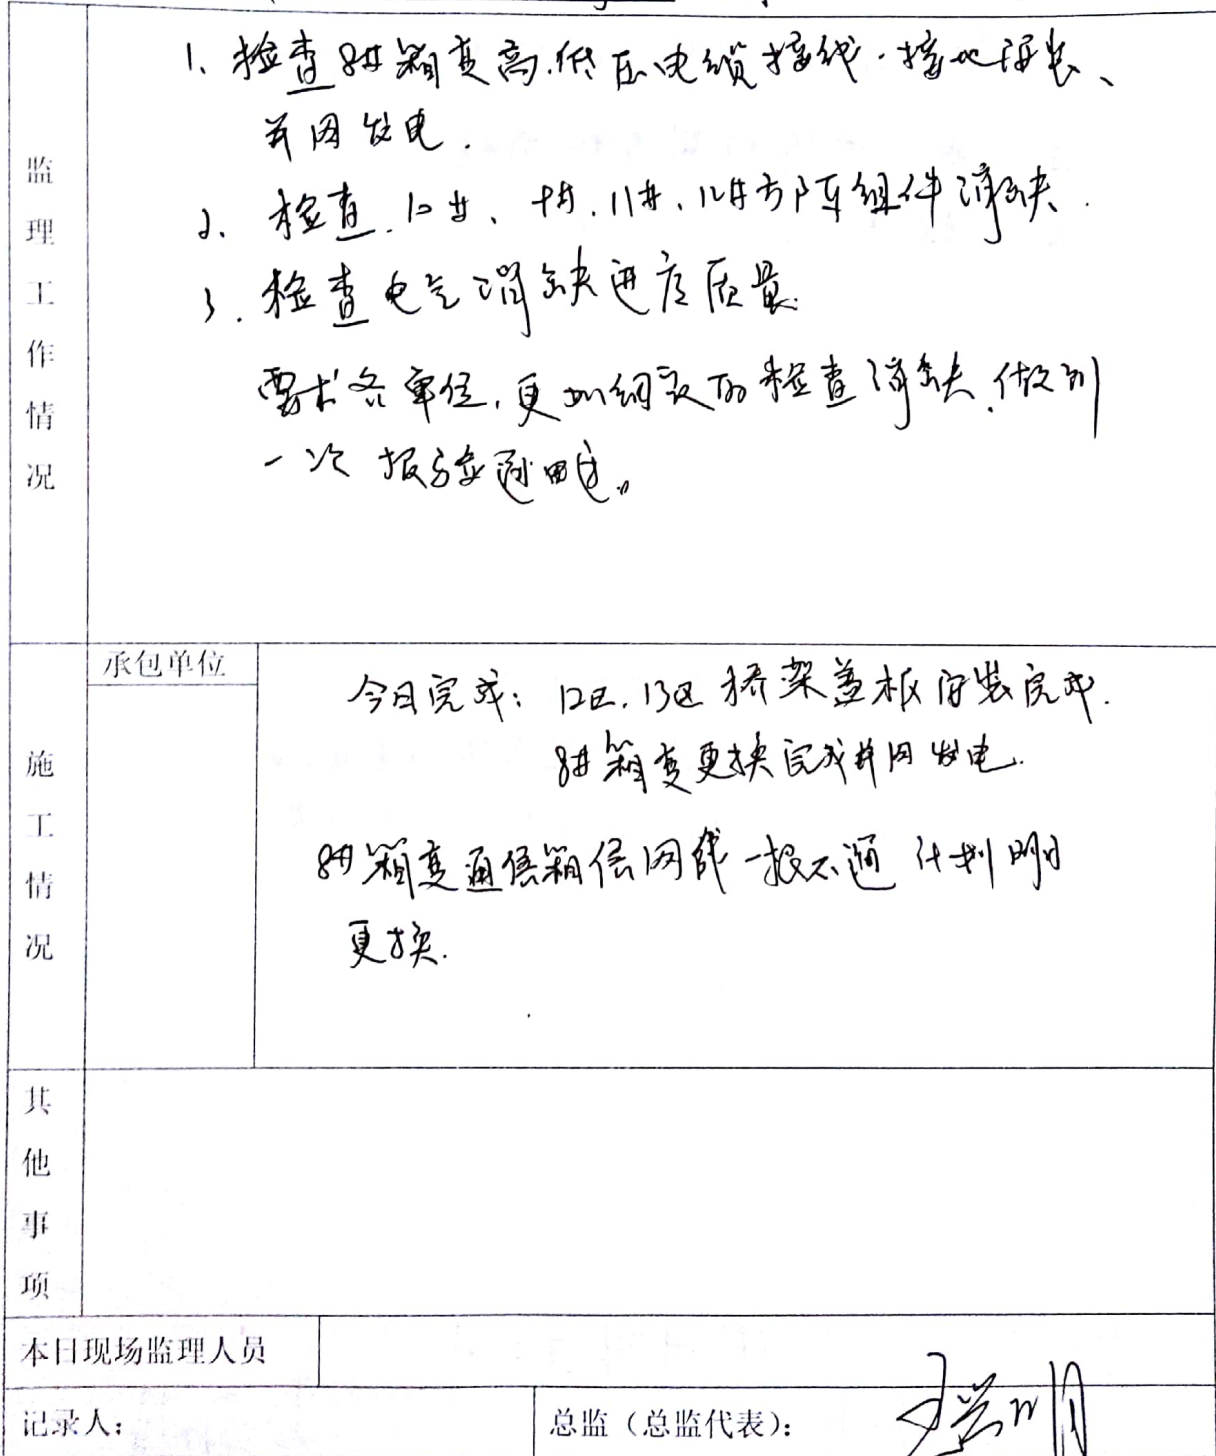 监理工作情况
1、检查8#箱变高.低压电缆接线.接地安装、
并网发电.
2、检查.10#、7#.11#、12#方阵组件消缺.
3.检查电气消缺进度质量.
要求各单位,更加细致的检查消缺,做到
一次报验通过。
施工情况
承包单位
今日完成:12区.13区桥架盖板安装完成.
8#箱变更换完成并网发电.
8#箱变通信箱信网线一根不通 计划明日
更换.
其他事项
本日现场监理人员
记录人: 总监(总监代表):